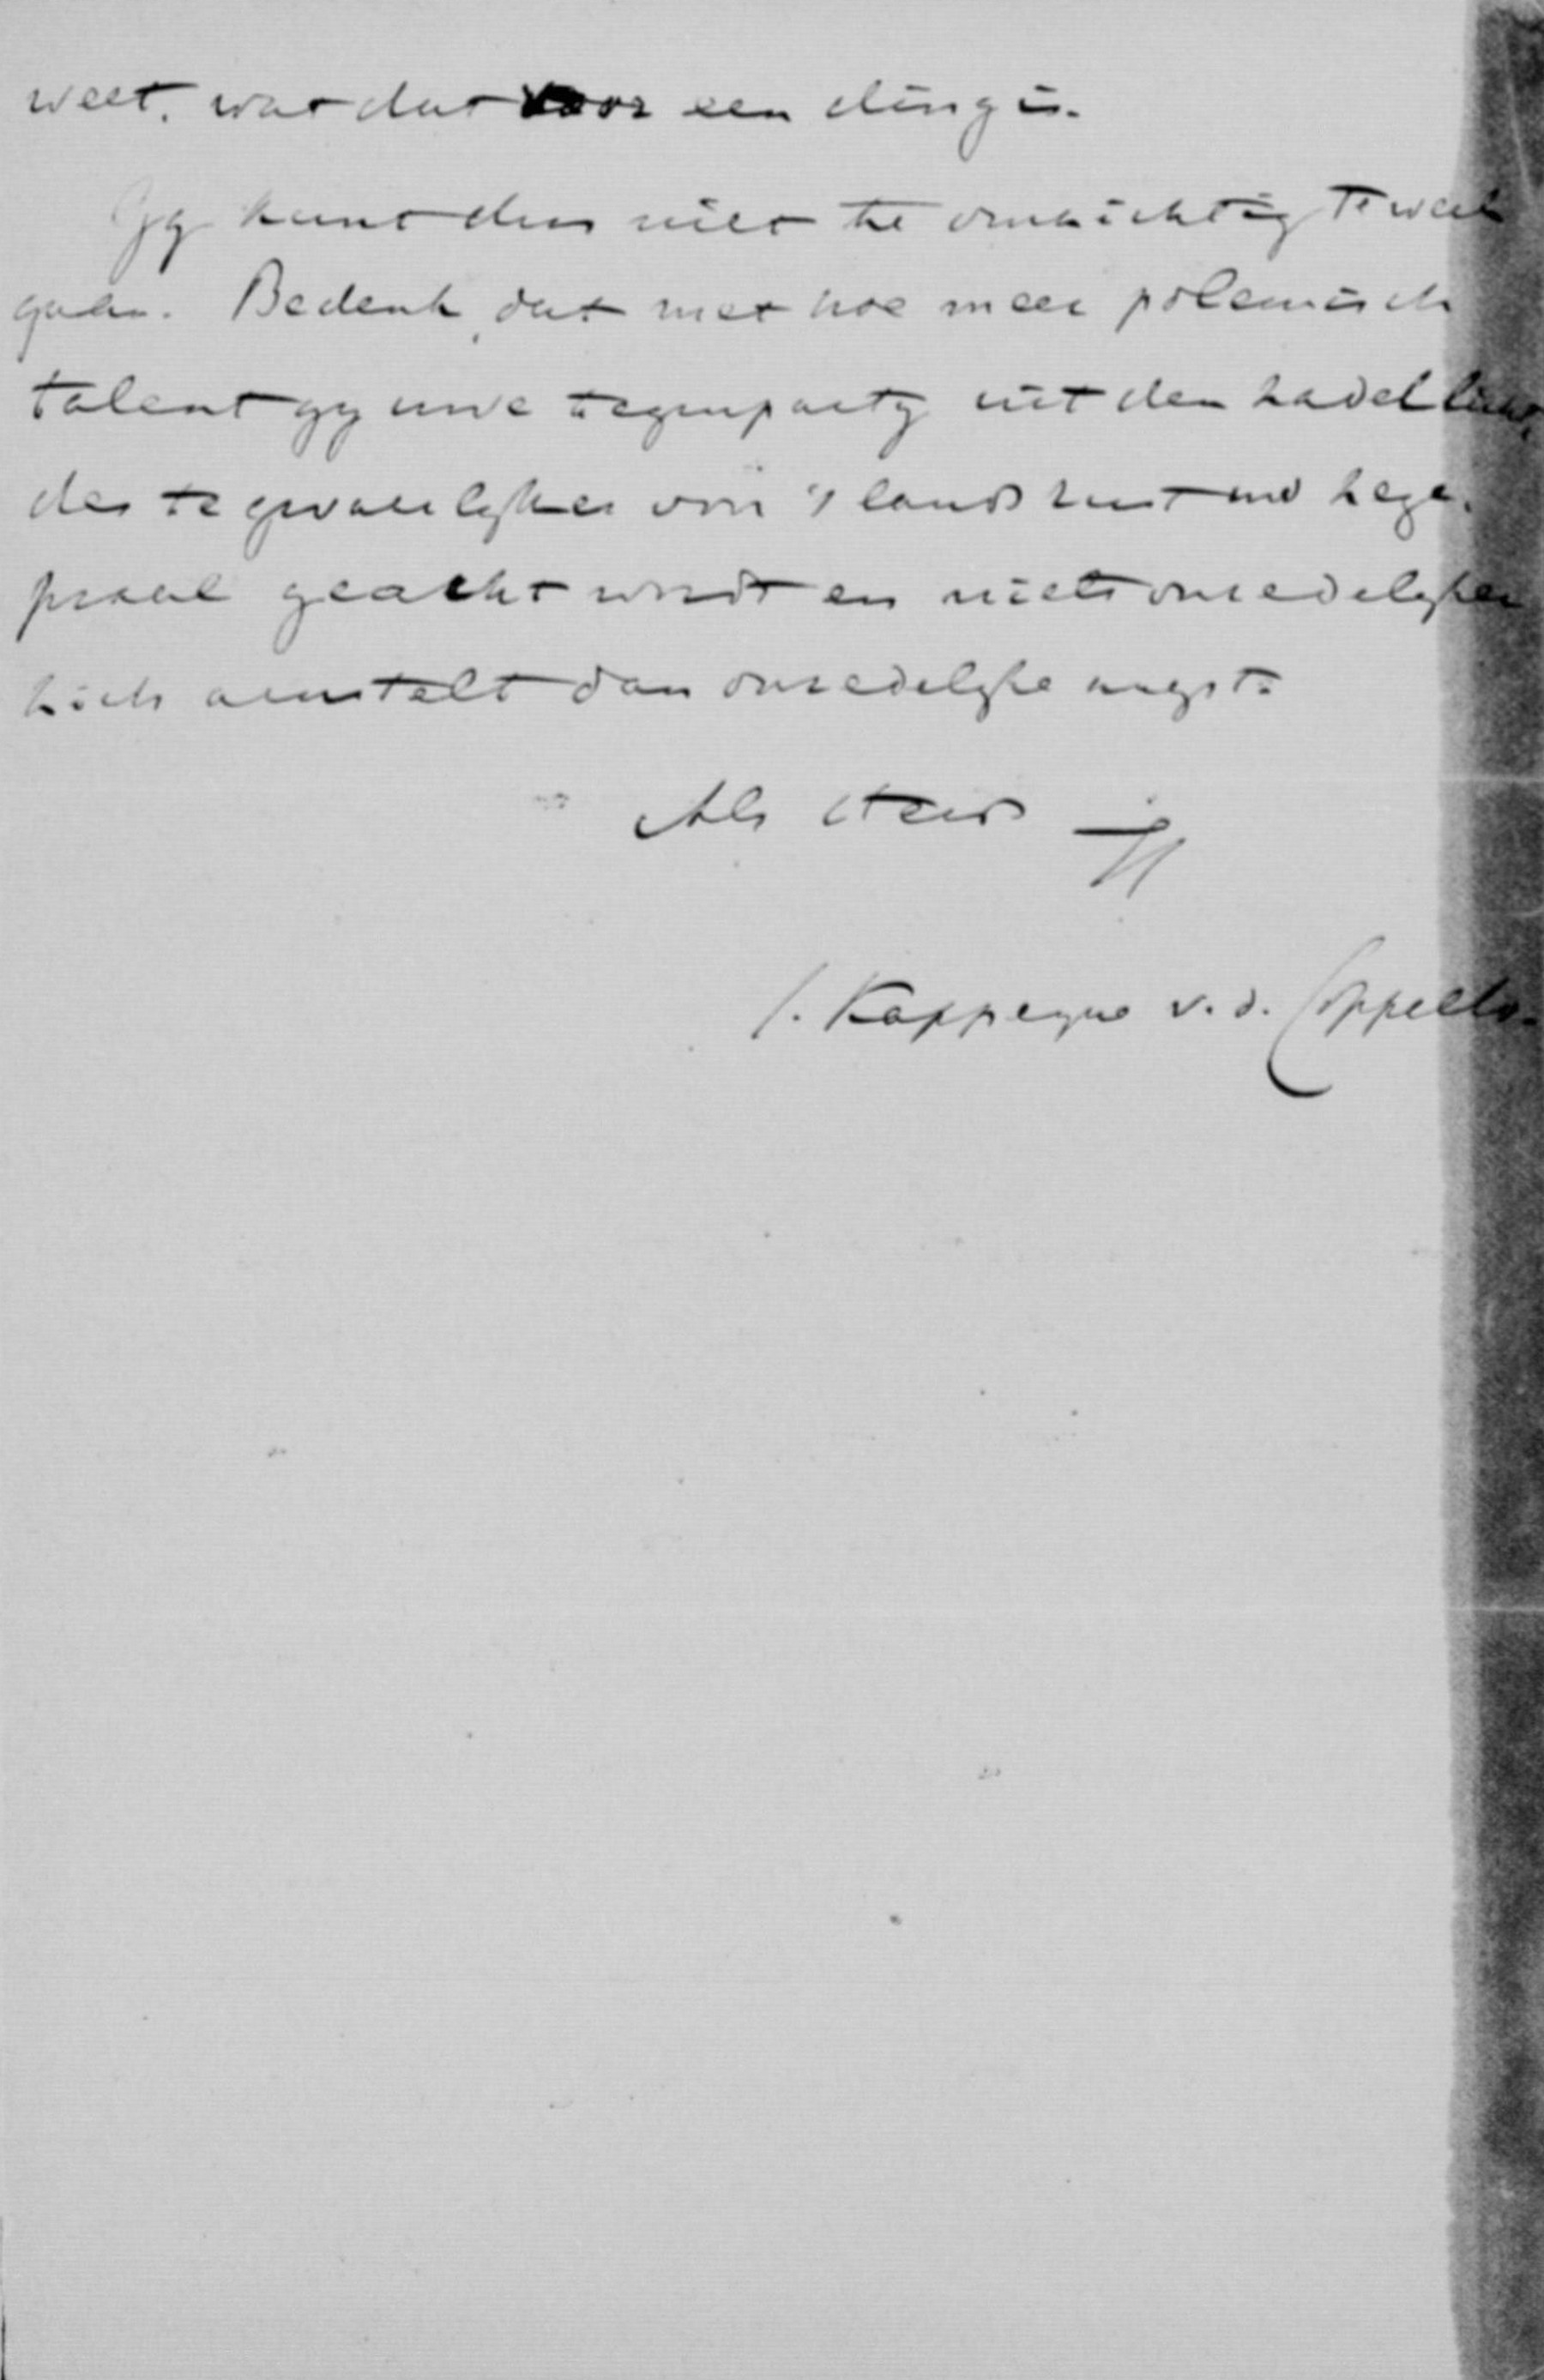 weet, wat dat voor een ding is.
Gy kunt dus niet te omzichtig te werk
gaan. Bedenk, dat met hoe meer polemisch
talent gy uwe tegenparty uit den zadel licht,
des te gevaarlyker voor 's lands rust uw zege-
praal geacht wordt en niets onredelyker
zich aanstelt dan onredelyke angst.
Als steeds
J. Kappeyne v. d. Coppello.